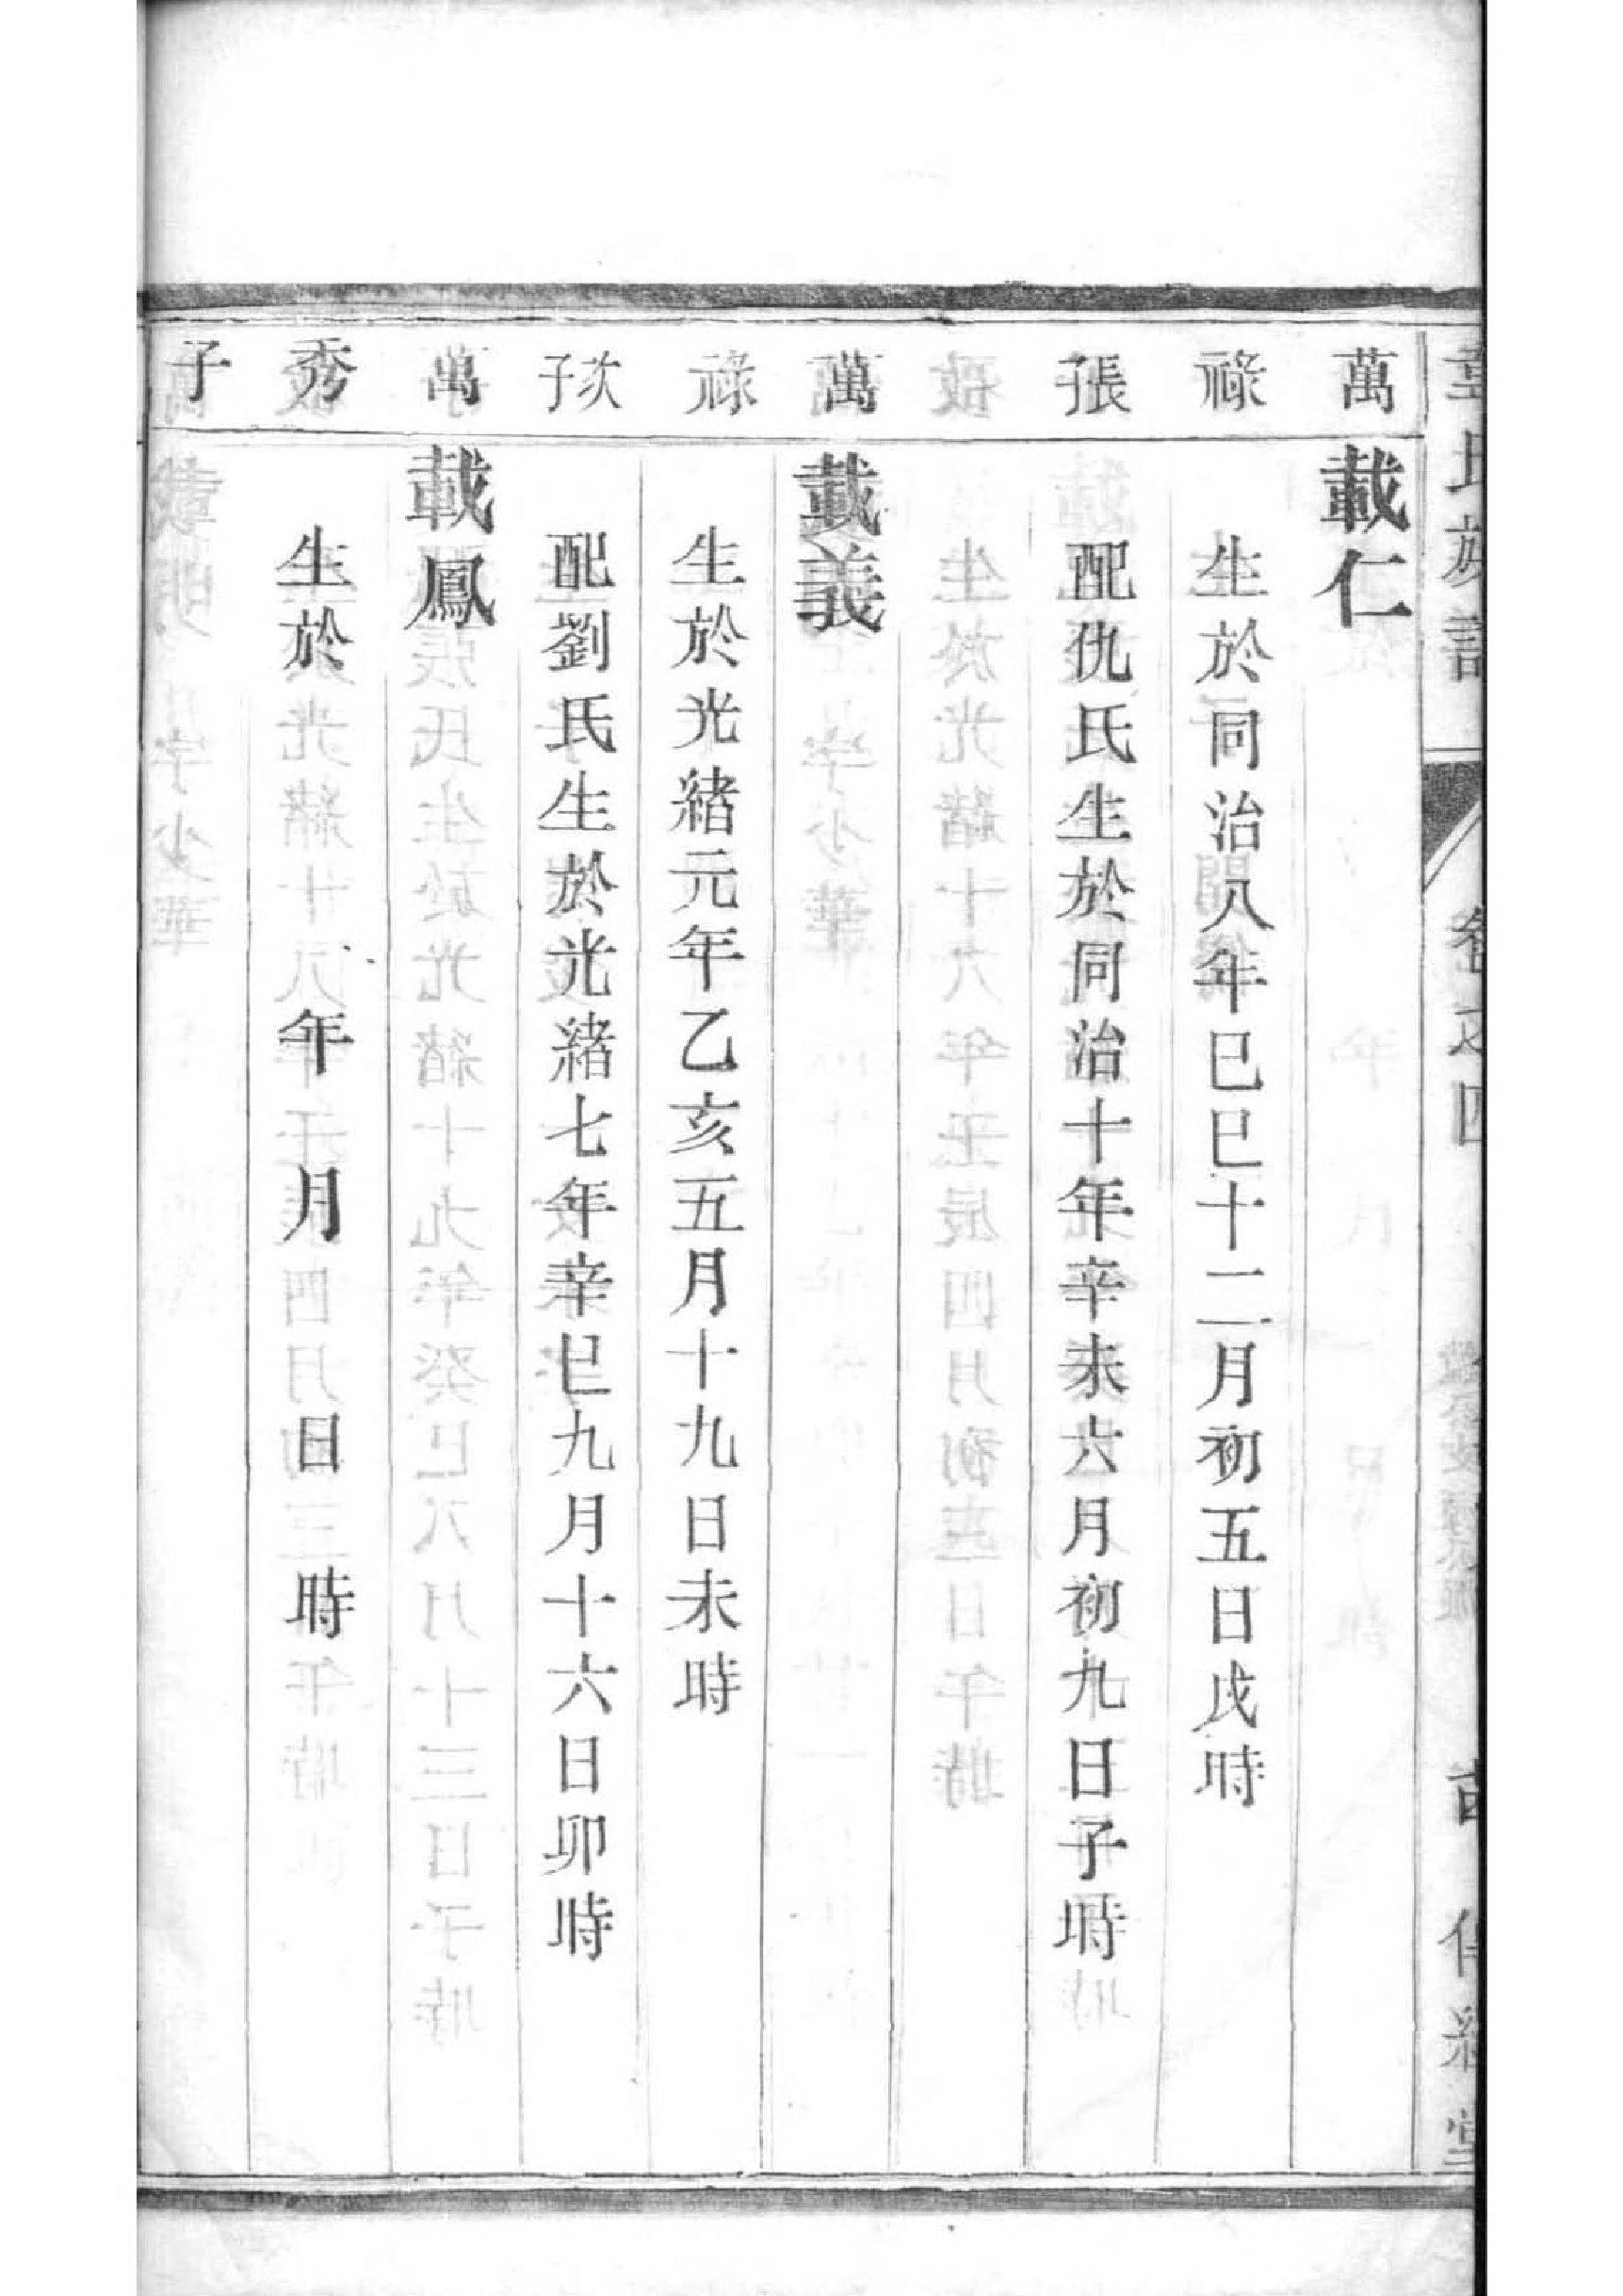 氏族譜 卷之四
萬 載仁
祿 生於同治八年己巳十二月初五日戌時
長子 配仇氏生於同治十年辛未六月初九日子時
萬 載義
祿 生於光緒元年乙亥五月十九日未時
次子 配劉氏生於光緒七年辛巳九月十六日卯時
萬 載鳳
秀 生於 年 月 日 時
子